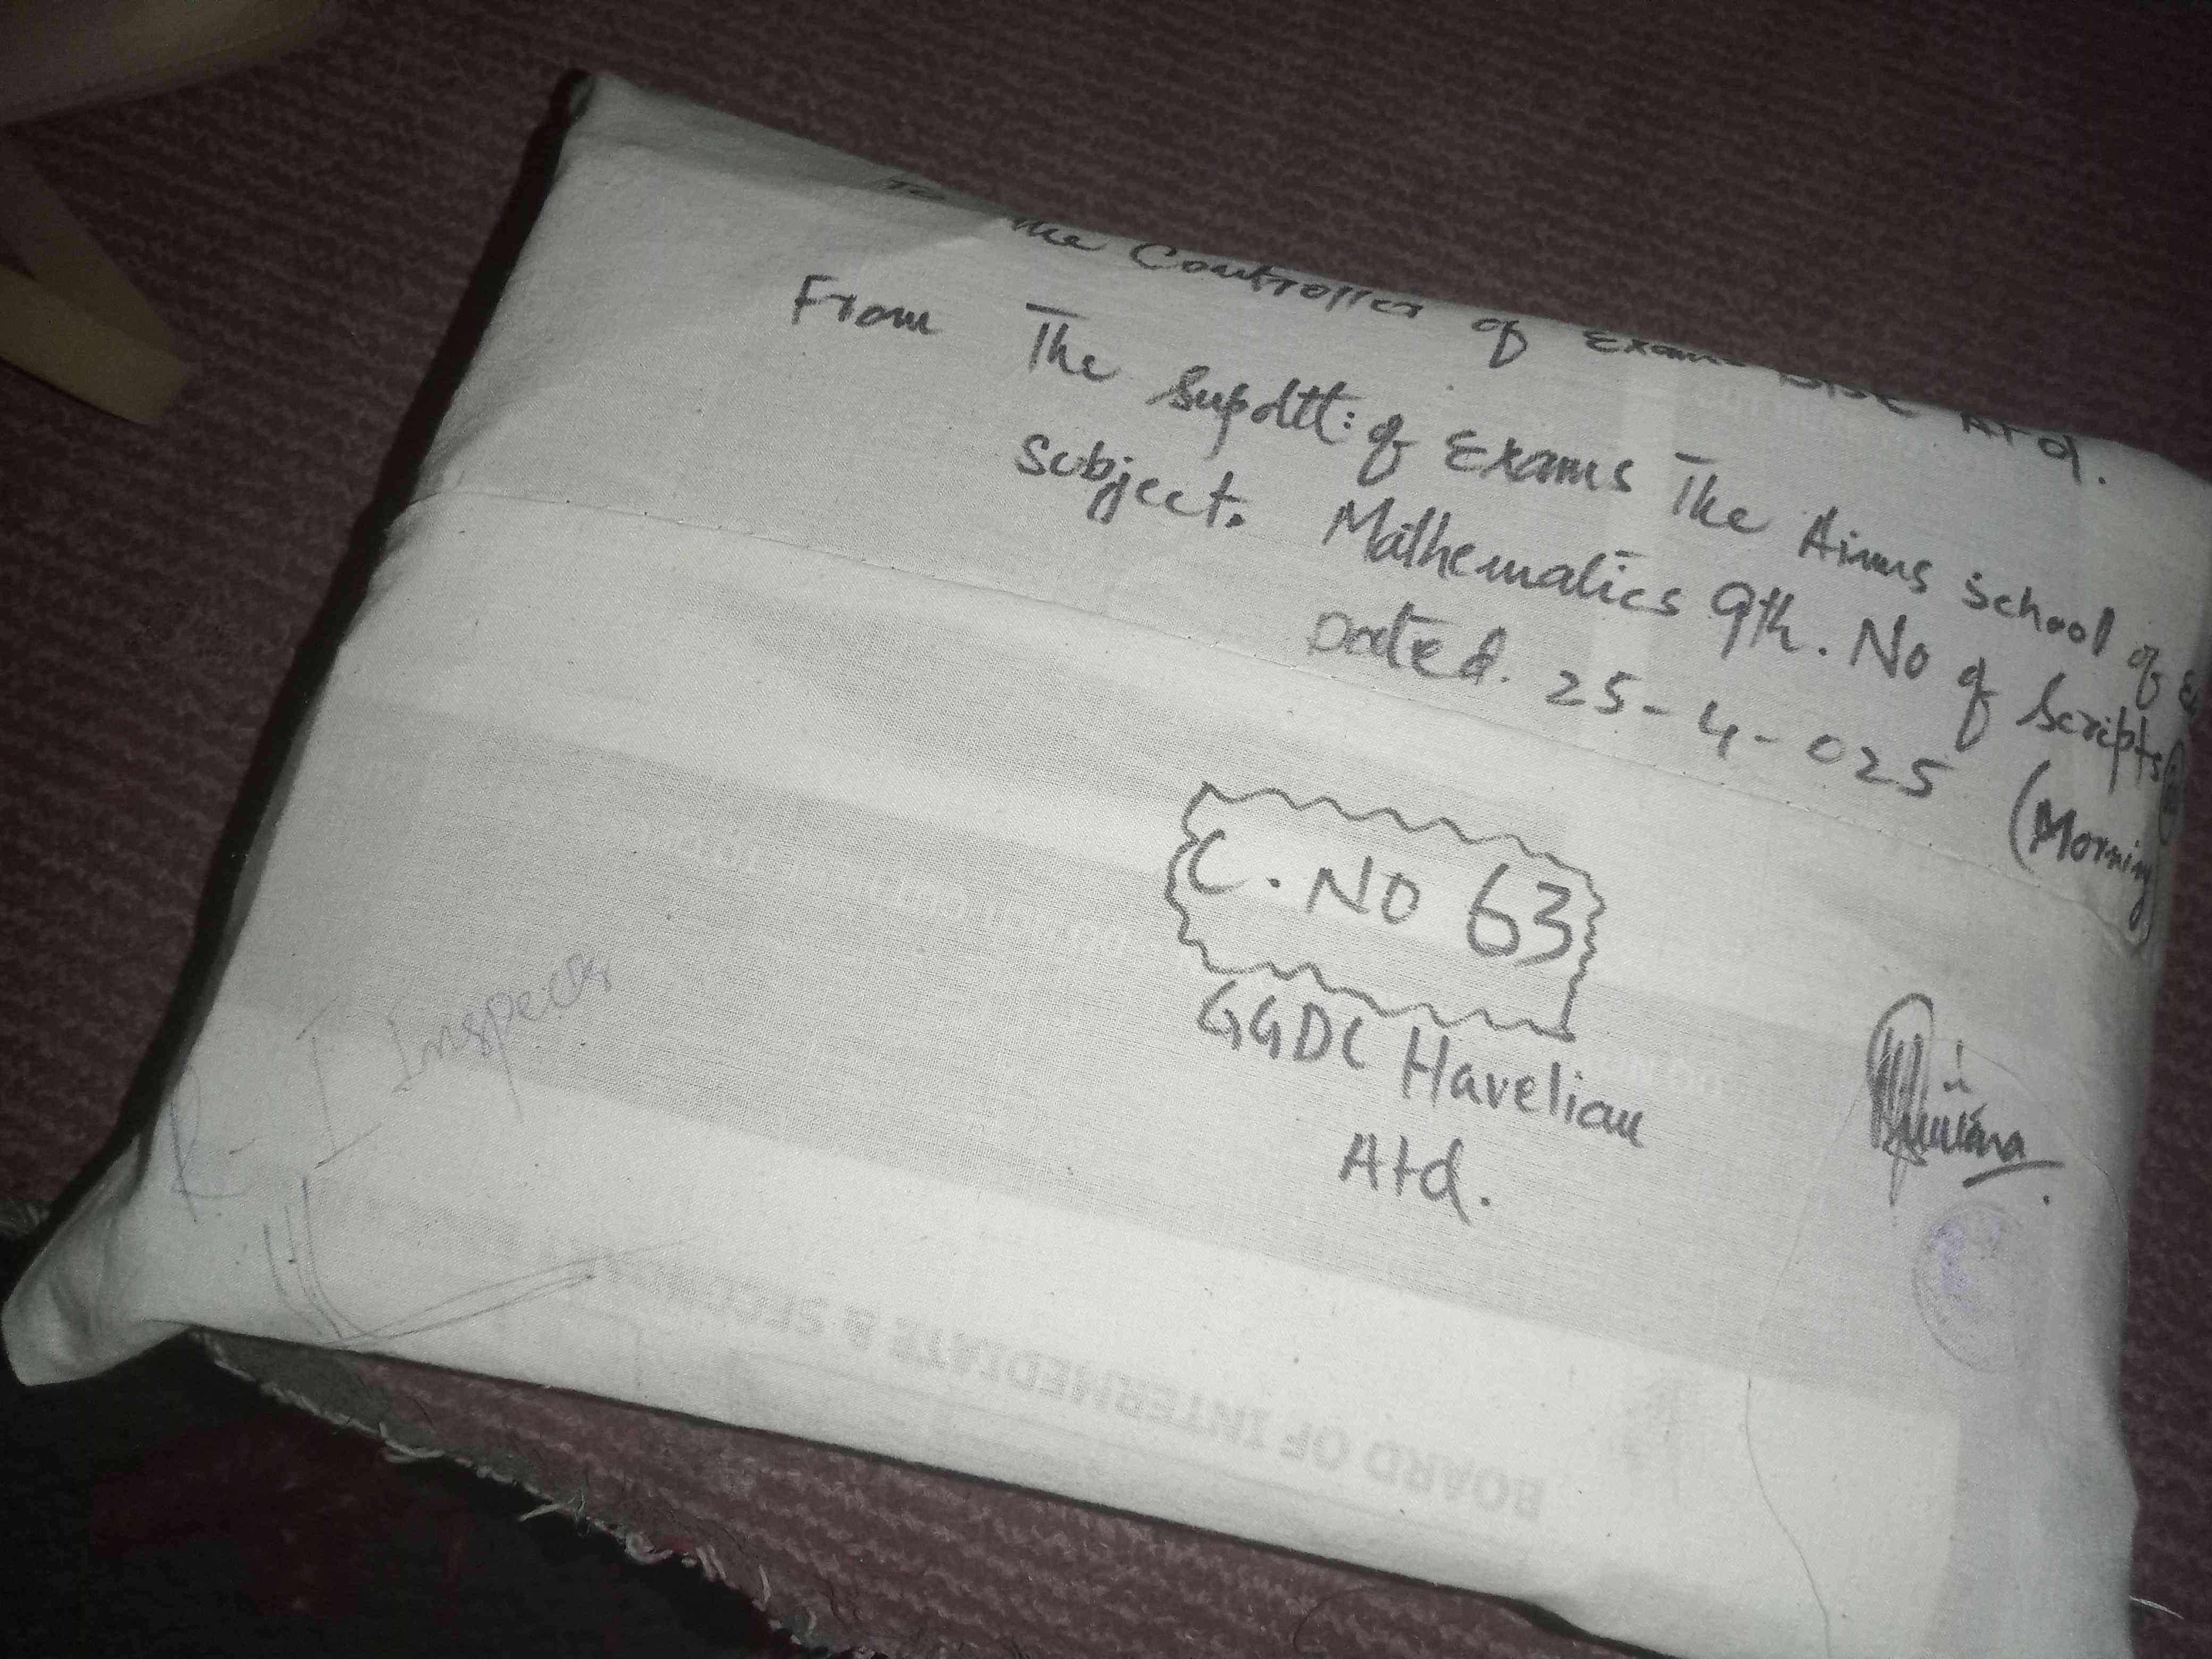 To
The Controller of Exams BISE Atd.
From The Supdtt: of Exams The Aims School of
Subject. Mathematics 9th. No of Scripts
Dated. 25-4-025 (Morning)
C. No 63
GGDC Havelian
Atd.
R I Inspector
BOARD OF INTERMEDIATE & SECONDARY